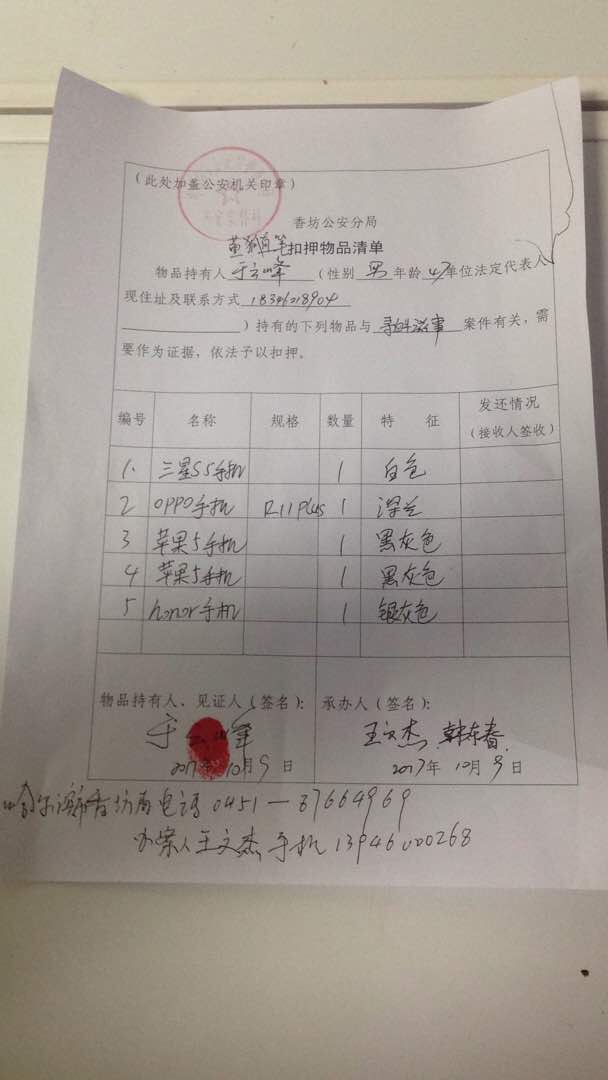 (此处加盖公安机关印章)
香坊公安分局
扣押物品清单
物品持有人 于云峰 (性别 男 年龄 47 单位法定代表人
现住址及联系方式 18346218904
)持有的下列物品与 寻衅滋事 案件有关,需
要作为证据,依法予以扣押。
编号 名称 规格 数量 特 征 发还情况
(接收人签收)
1. 三星S5手机 1 白色
2 OPPO手机 R11Plus 1 深兰
3 苹果5手机 1 黑灰色
4 苹果5手机 1 黑灰色
5 honor手机 1 银灰色
物品持有人、见证人(签名): 承办人(签名):
于云峰 王文杰 韩东春
2017年10月9日 2017年10月9日
哈尔滨市香坊局电话 0451—87664969
办案人王文杰手机 13946000268